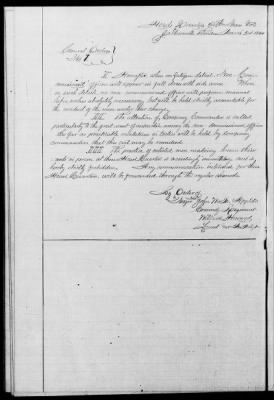 Head Quarters
Jacksonville Florida March 1864
General Orders
No 7
I Hereafter when on fatigue detail, Non Com-
missioned officers will appear in full dress with side arms. When
on such detail, no non commissioned officer will perform manual
labor unless absolutely necessary, but will be held strictly accountable for
the conduct of the men under their charge.
II The attention of Company Commanders is called
particularly to the great want of among the non commissioned officers
So far as practicable in orders will be held by Company
commanders that this evil may be remedied.
III The practice of enlisted men making known their
wants in person at these Head Quarters is exceedingly and is
hereby strictly forbidden. Any communication intended for these
Head Quarters will be forwarded through the regular channels
By Order of
Major John W. M. Appleton
Comdg Regiment
Willard Howard
Lieut